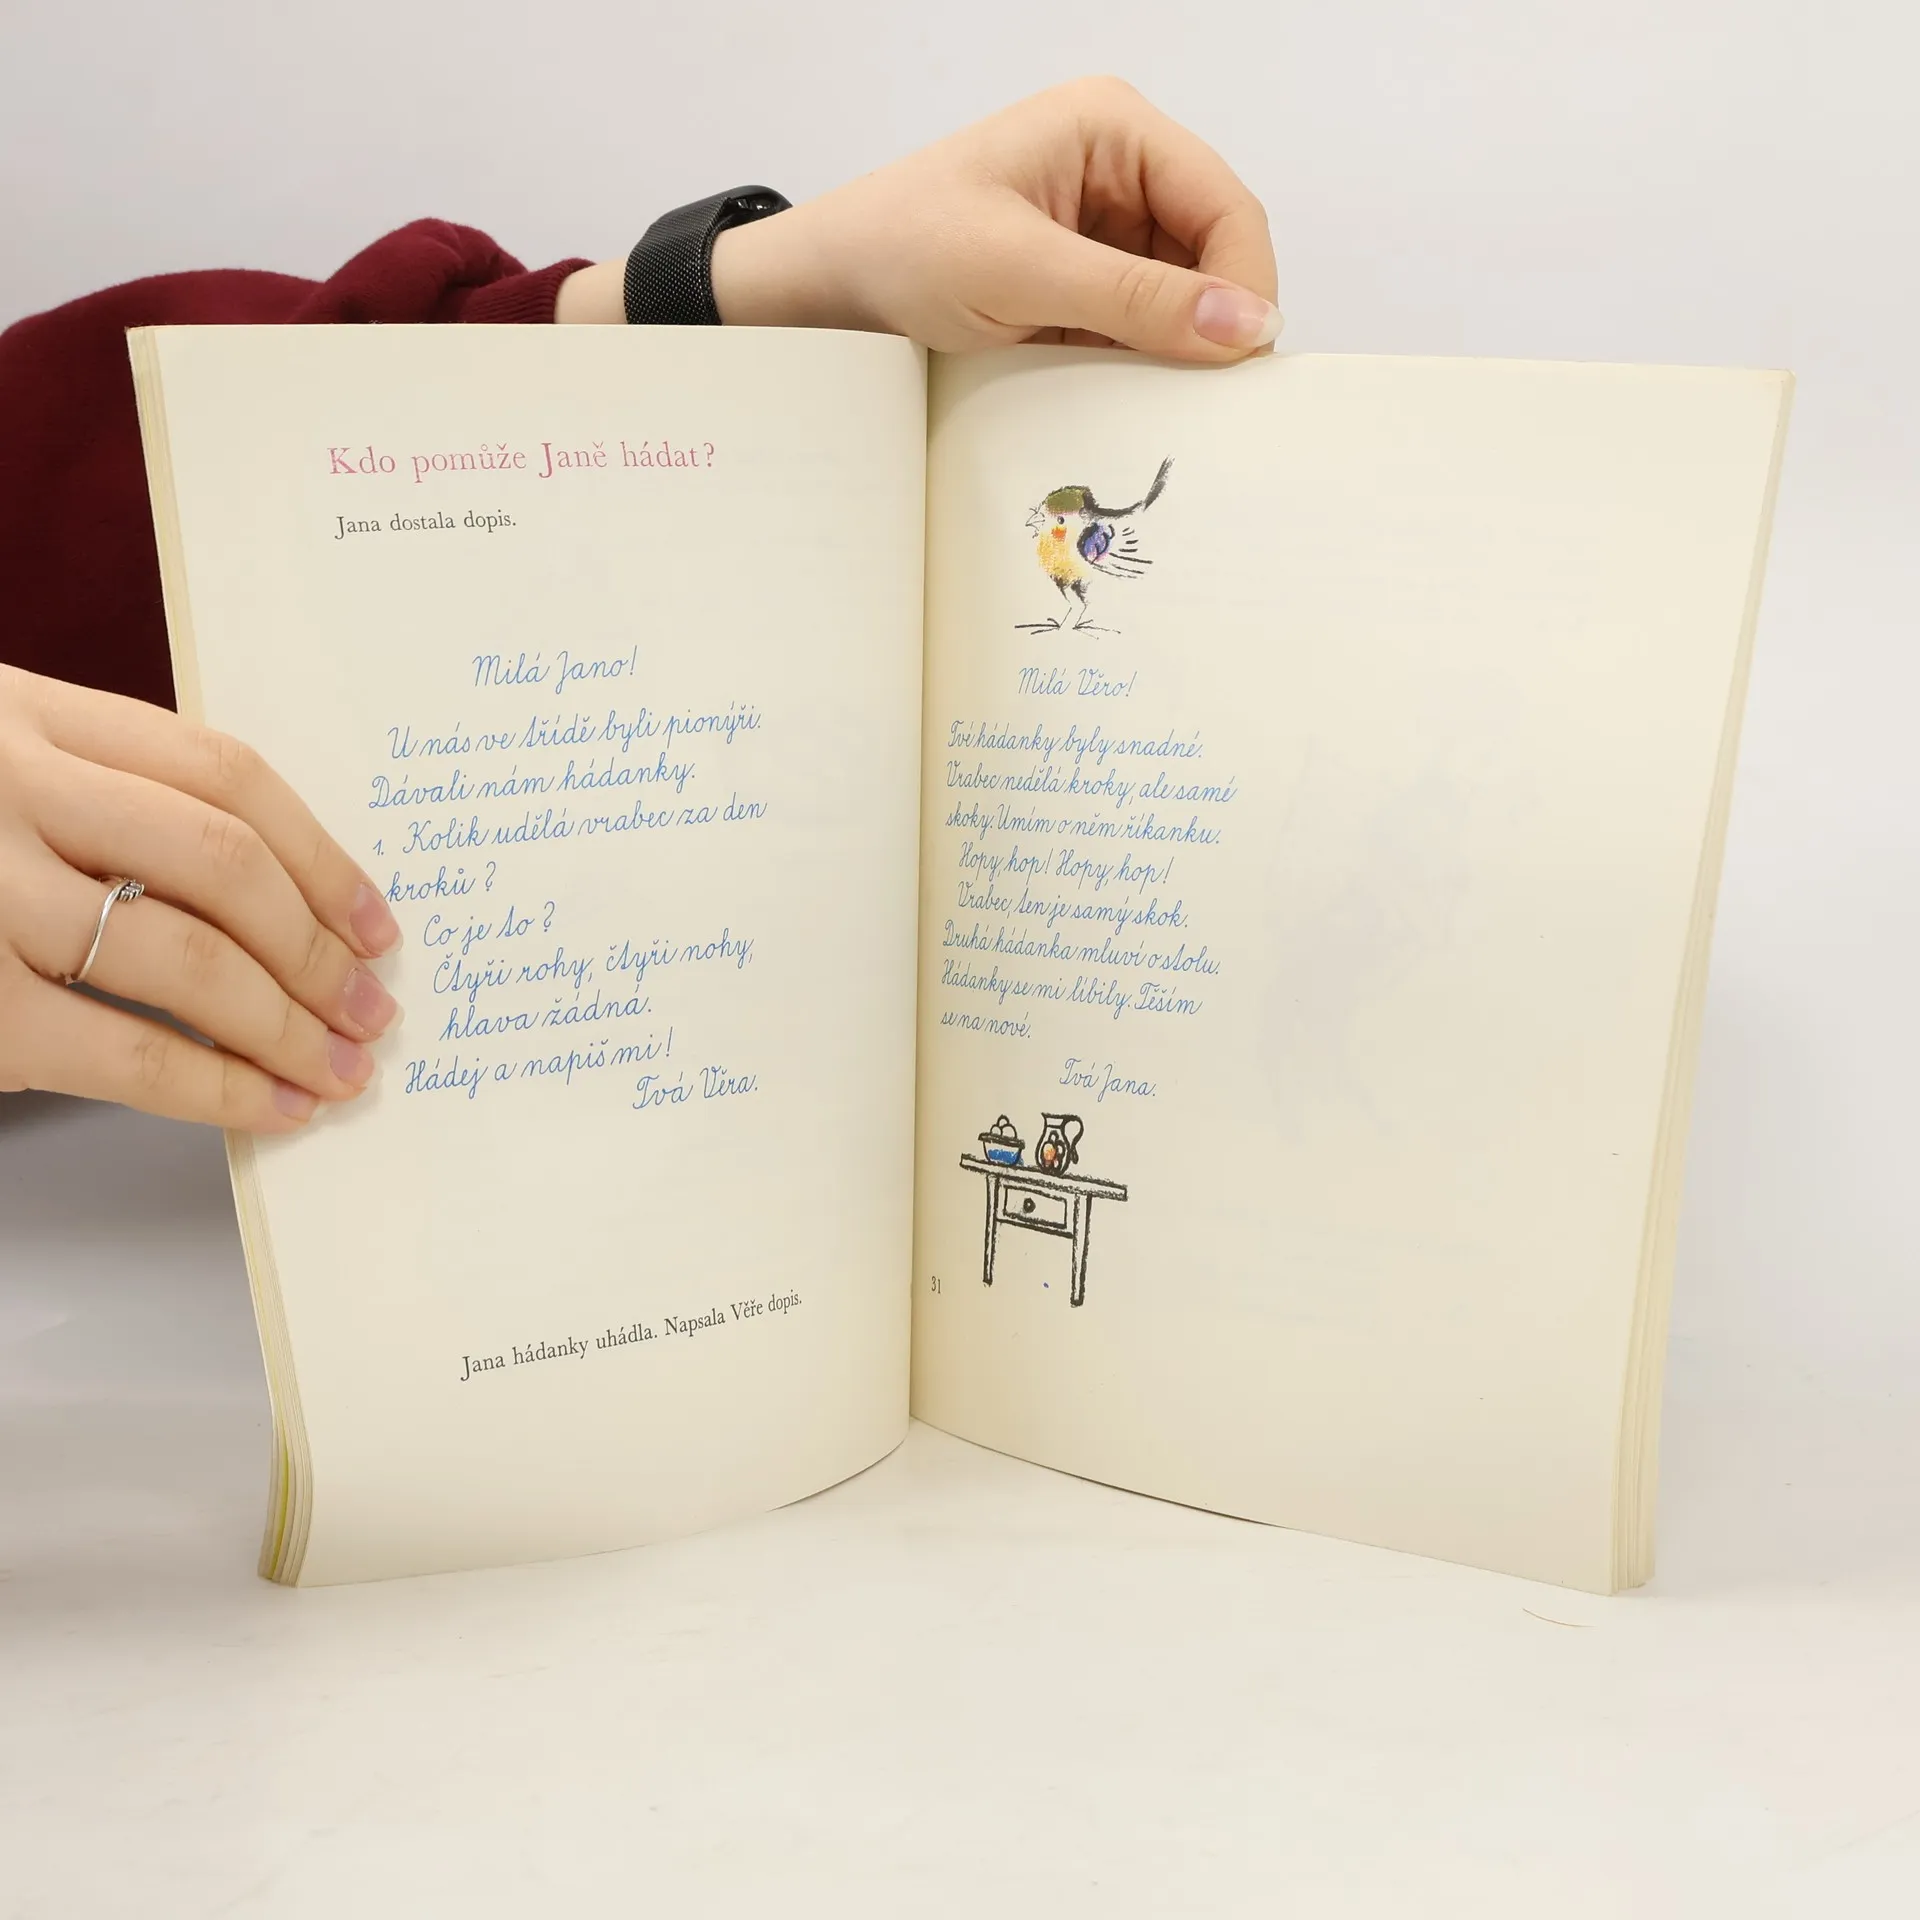 Kdo pomůže Janě hádat?
Jana dostala dopis.
Milá Jano!
U nás ve třídě byli pionýři.
Dávali nám hádanky.
1. Kolik udělá vrabec za den
kroků?
Co je to?
Čtyři rohy, čtyři nohy,
hlava žádná.
Hádej a napiš mi!
Tvá Věra.
Jana hádanky uhádla. Napsala Věře dopis.
Milá Věro!
Tvé hádanky byly snadné.
Vrabec nedělá kroky, ale samé
skoky. Umím o něm říkanku.
Hopy, hop! Hopy, hop!
Vrabec, ten je samý skok.
Druhá hádanka mluví o stolu.
Hádanky se mi líbily. Těším
se na nové.
Tvá Jana.
31